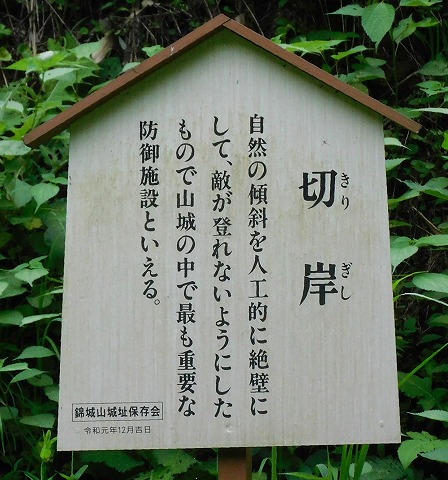 切岸
きり ぎし
自然の傾斜を人工的に絶壁に
して、敵が登れないようにした
もので山城の中で最も重要な
防御施設といえる。
錦城山城址保存会
令和元年12月吉日